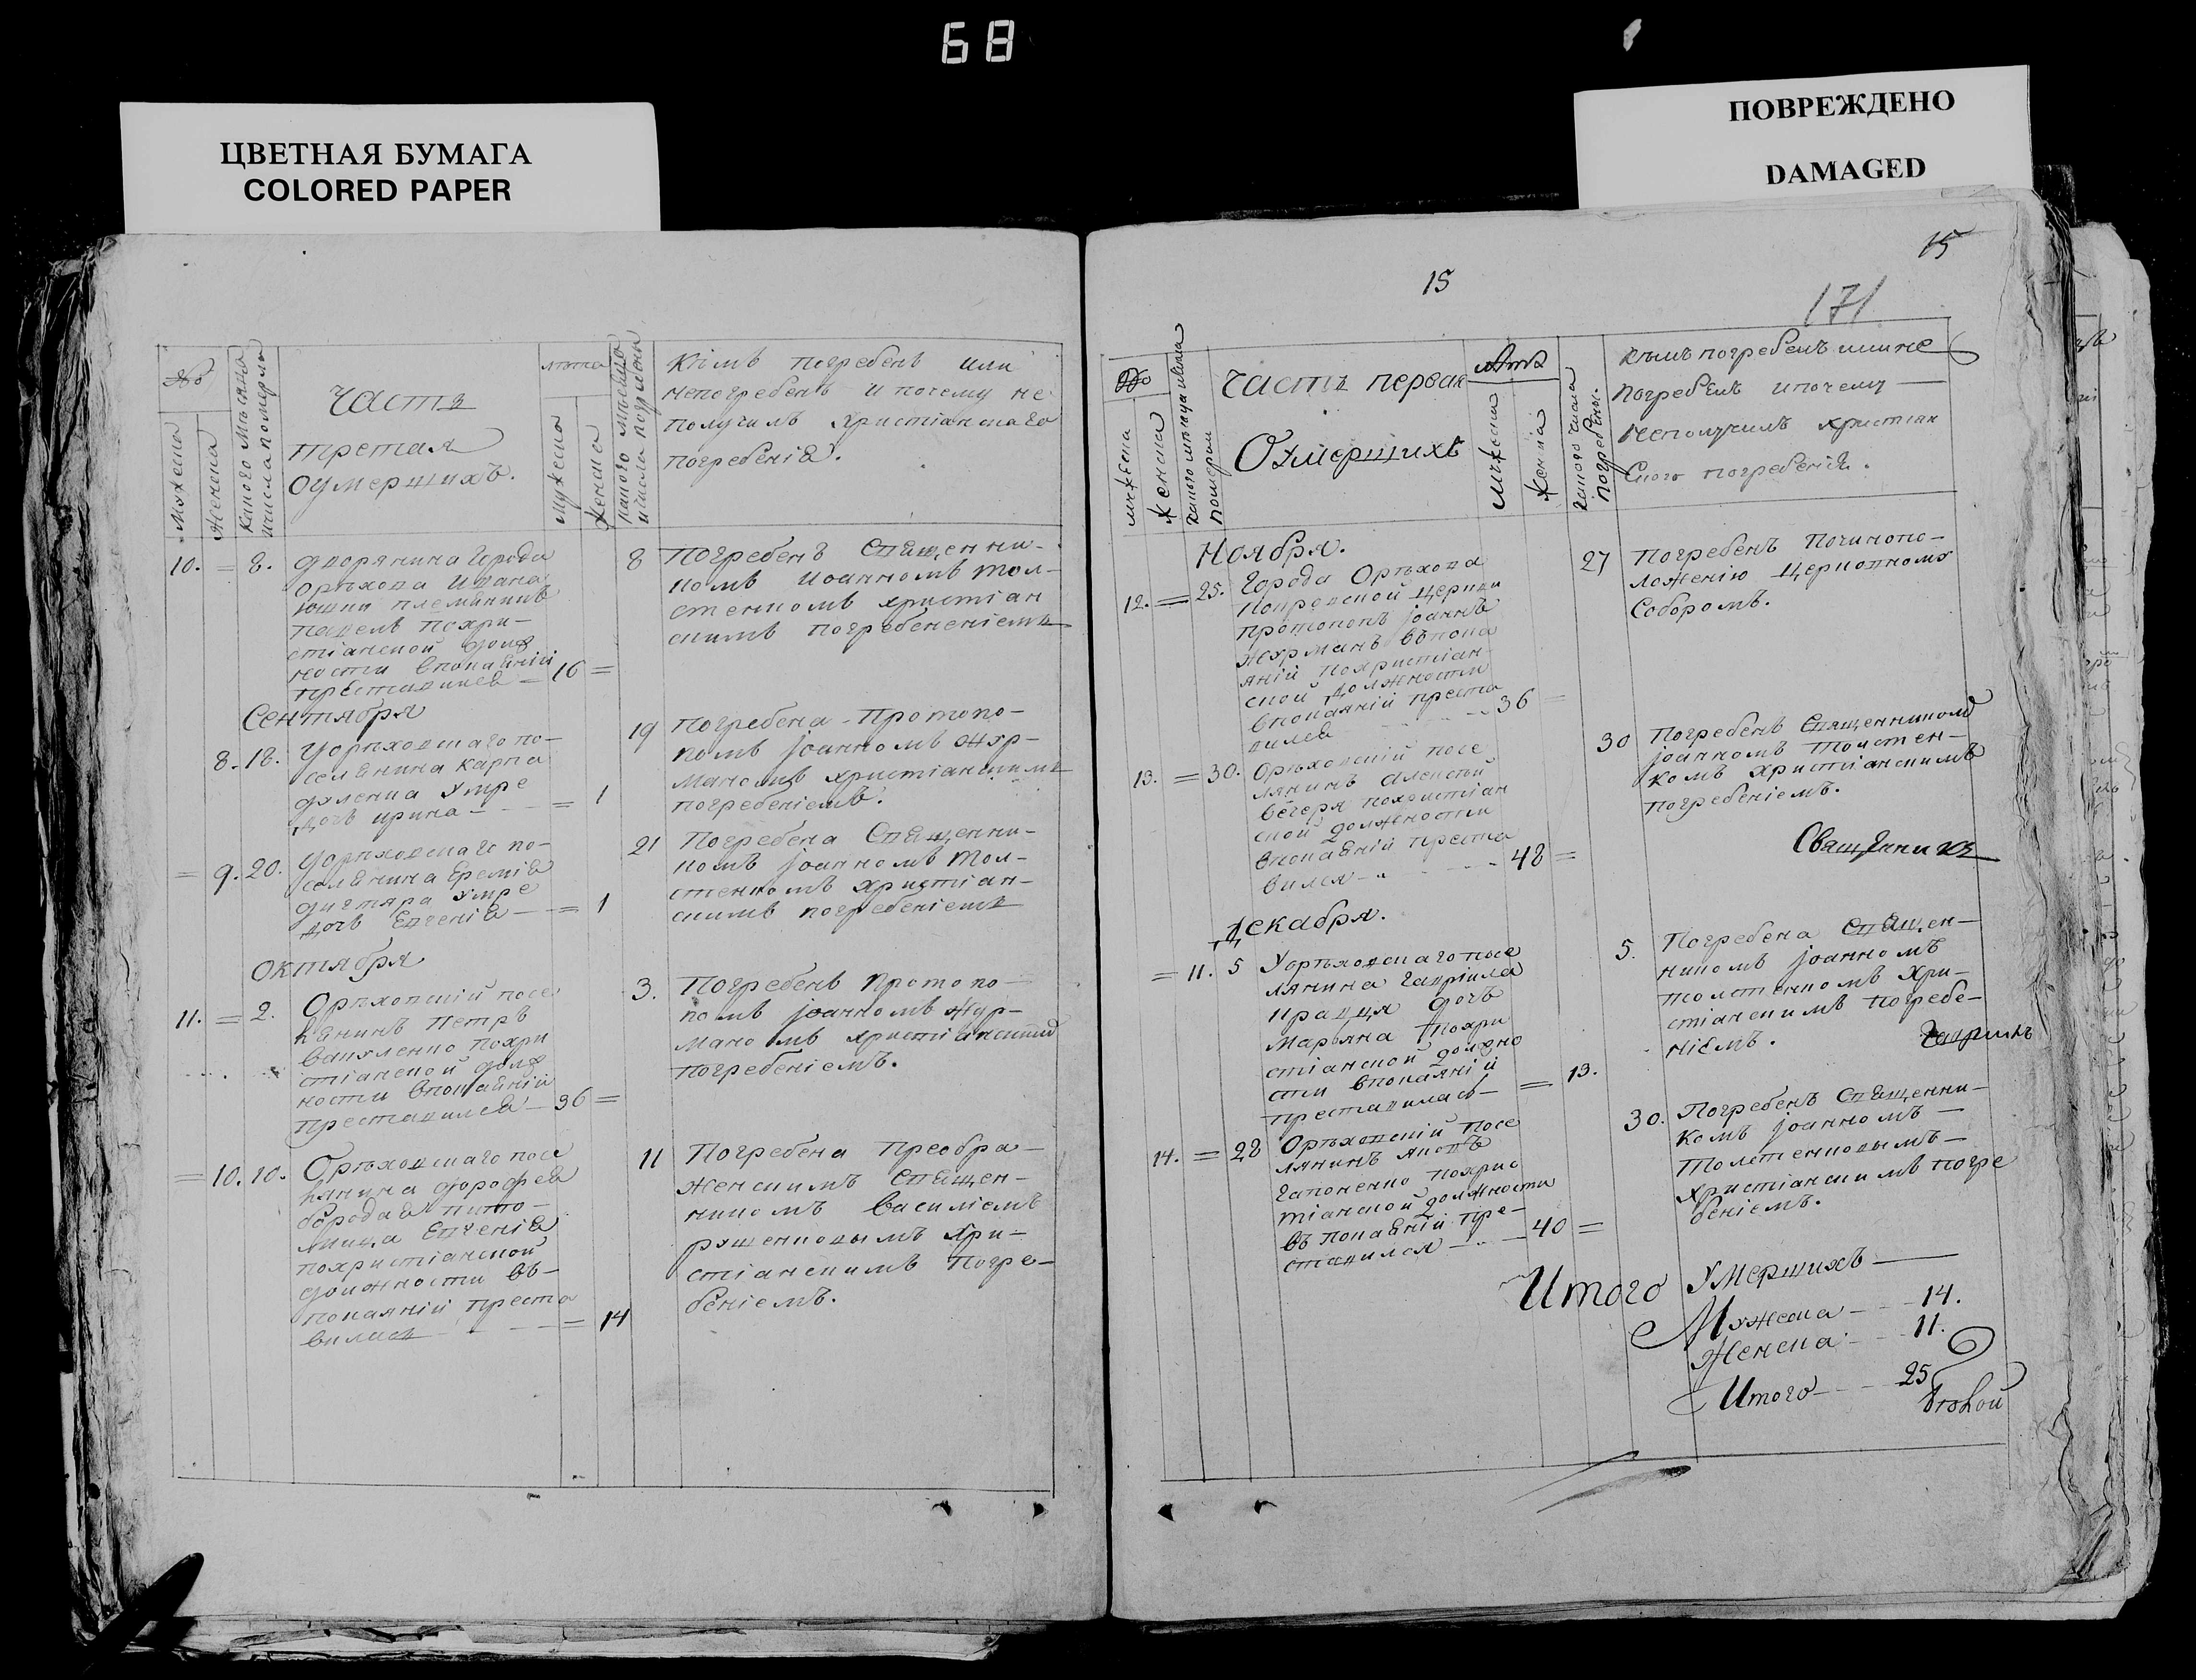 68
ЦВЕТНАЯ БУМАГА
COLORED PAPER
ПОВРЕЖДЕНО
DAMAGED
№
Мужеска
Женска
Коего месяца
и числа померли
Часть
третая
оумершихъ.
лѣта
Мужеска
Женска
коего месяца
и числа погребены
Кѣмъ погребенъ или
непогребенъ и почему не
получилъ христіанскаго
погребенія.
10. = 8. дворянина города
Орѣхова Ивана
племянникъ
Павелъ похри-
стіанской долж
ности впокаяніи
преставился — 16 =
8 Погребенъ Священни-
комъ Иоанномъ Тол-
стенкомъ христіан
скимъ погребененіемъ
Сентября
8. 18. Уорѣховскаго по-
селянина Карпа
умре
дочь Ирина — = 1
19 Погребена Протопо-
помъ Іоанномъ Жур-
маномъ христіанскимъ
погребеніемъ.
= 9. 20. Уорѣховскаго по-
селянина Еремія
дигтяра умре
дочь Евгенія — = 1
21 Погребена Священни-
комъ Іоанномъ Тол-
стенкомъ христіан-
скимъ погребеніемъ
Октября
11. = 2. Орѣховскій посе
лянинъ Петръ
Вакуленко похри
стіанской долж
ности впокаяніи
преставился — 36 =
3. Погребенъ Протопо-
помъ Іоанномъ Жур-
маномъ христіанскимъ
погребеніемъ.
= 10. 10. Орѣховскаго посе
лянина Дорофея
Бородая пито-
мица Евгенія
похристіанской
должности въ-
покаяніи преста
вилась — = 14
11 Погребена Преобра-
женскимъ Священ-
никомъ Василіемъ
Рущенковымъ Хри-
стіанскимъ Погре-
беніемъ.
15
15
171
№
мужеска
женска
каного мѣсяца ичисла
померли
Часть первая
Оумершихъ
Лѣта
мужеска
женска
каного числа
погребены.
кѣмъ погребенъ или не
погребенъ ипочему
неполучилъ христіан
скаго погребенія.
Ноября.
12. = 25. Города Орѣхова
Покровской церкви
протопопъ Іоаннъ
Журманъ въпока
яніи похристіан-
ской должности
впокаяніи преста
вился — 36 =
27 Погребенъ Починопо-
ложенію церковному
Соборомъ.
13. = 30. Орѣховскій посе
лянинъ Алексей
Вечеря похристіан
ской должности
впокаяніи преста
вился — 48 =
30 Погребенъ Священникомъ
Іоанномъ Толстен-
комъ Христіанскимъ
погребеніемъ.
Священникъ
Декабря.
= 11. 5 Уорѣховскаго посе
лянина Гавріила
дочь
Марьяна похри
стіанской должно
сти впокаяніи
преставилась — = 13.
5. Погребена Священ-
никомъ Іоанномъ
Толстенкомъ Хри-
стіанскимъ погребе-
ніемъ.
Гавріилъ
14. = 28 Орѣховскій посе
лянинъ Яковъ
Гапоненко похрис
тіанской должности
въ покаяніи пре-
ставился — 40 =
30. Погребенъ Священни-
комъ Іоанномъ —
Толстенковымъ —
Христіанскимъ погре
беніемъ.
Итого Умершихъ —
Мужеска — 14.
Женска — 11.
Итого — 25